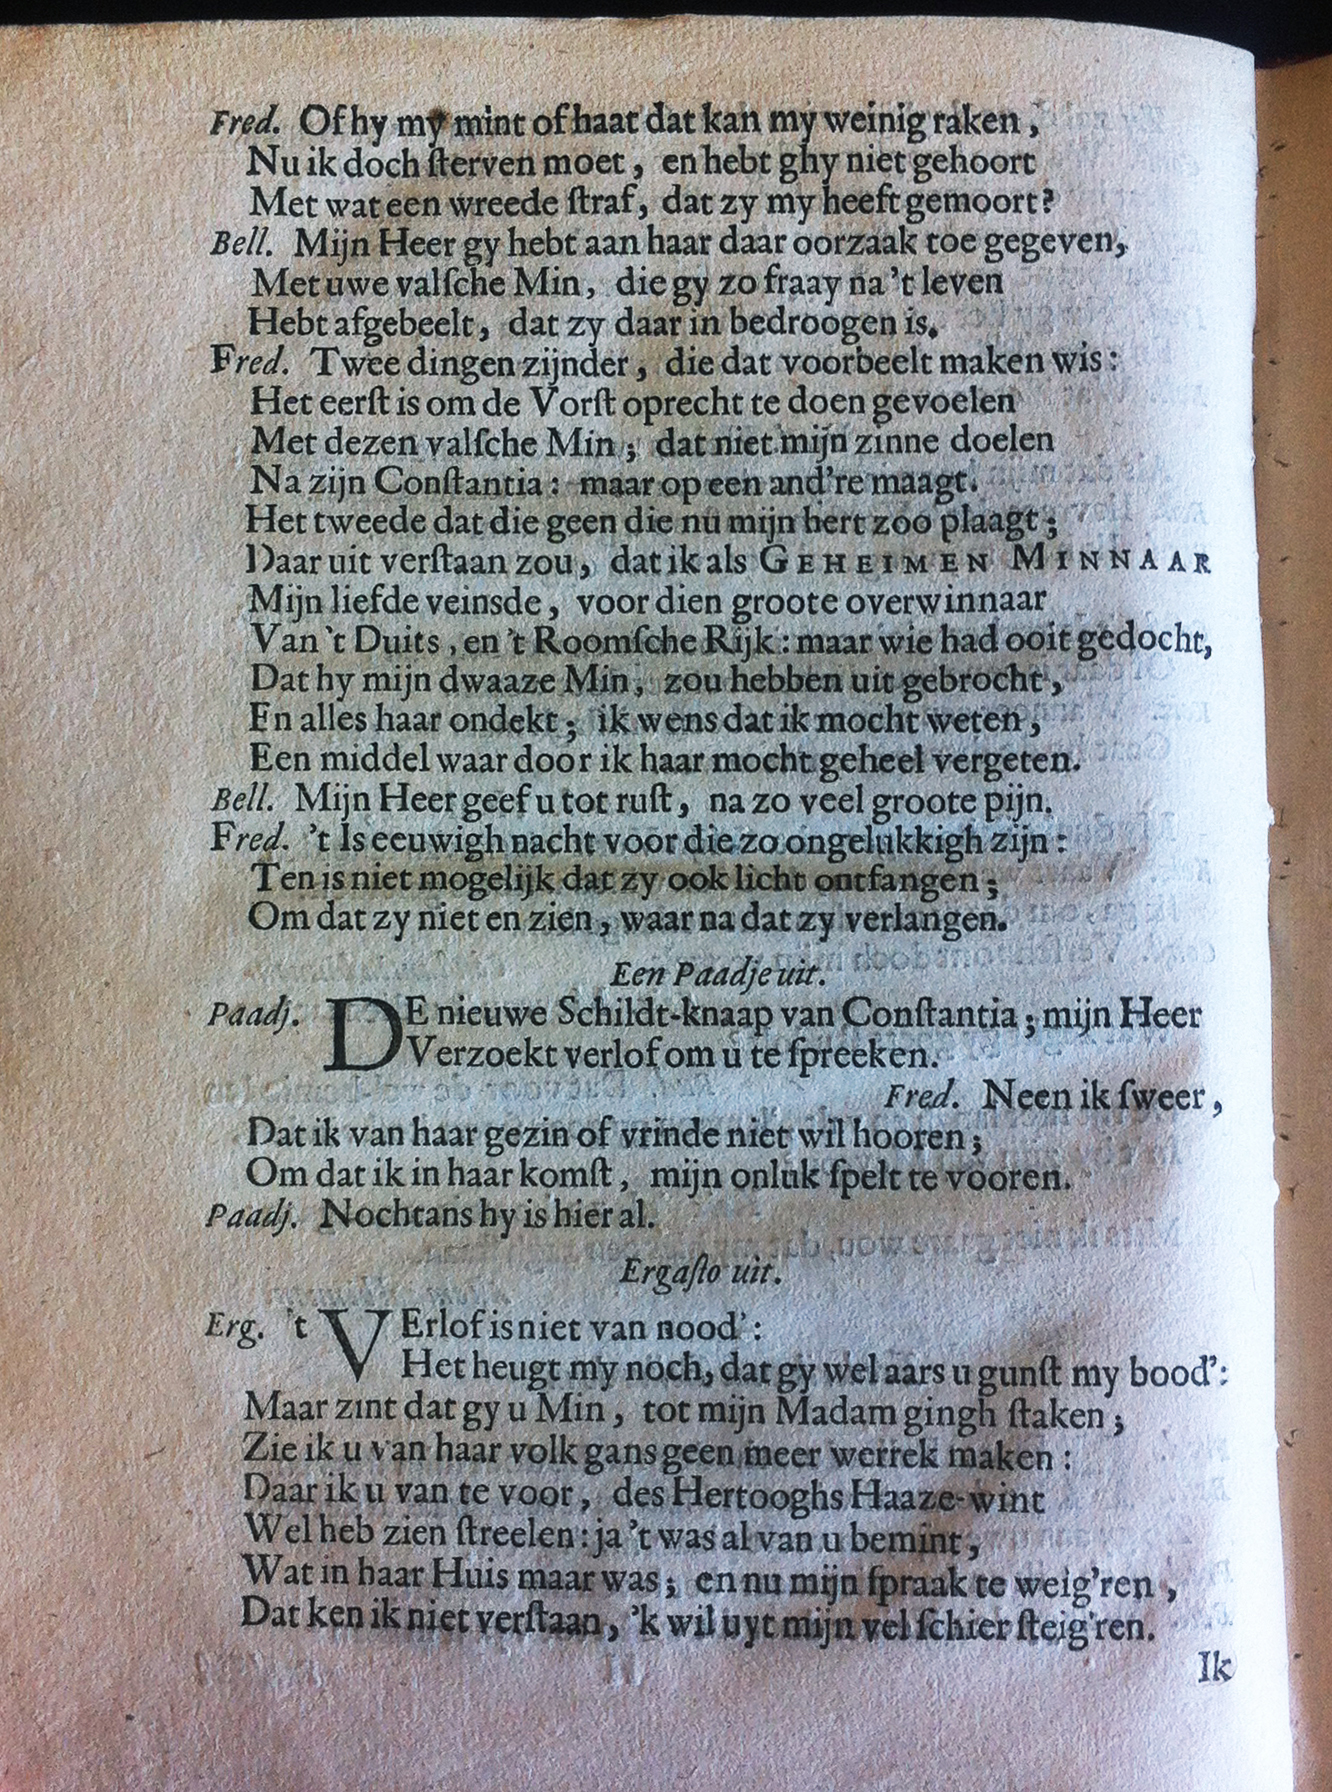 Fred. Of hy my mint of haat dat kan my weinig raken,
Nu ik doch ſterven moet, en hebt ghy niet gehoort
Met wat een wreede ſtraf, dat zy my heeft gemoort?
Bell. Mijn Heer gy hebt aan haar daar oorzaak toe gegeven,
Met uwe valſche Min, die gy zo fraay na 't leven
Hebt afgebeelt, dat zy daar in bedroogen is.
Fred. Twee dingen zijnder, die dat voorbeelt maken wis:
Het eerſt is om de Vorſt oprecht te doen gevoelen
Met dezen valſche Min; dat niet mijn zinne doelen
Na zijn Conſtantia: maar op een and're maagt.
Het tweede dat die geen die nu mijn hert zoo plaagt;
Daar uit verſtaan zou, dat ik als GEHEIMEN MINNAAR
Mijn liefde veinsde, voor dien groote overwinnaar
Van 't Duits, en 't Roomſche Rijk: maar wie had ooit gedocht,
Dat hy mijn dwaaze Min, zou hebben uit gebrocht,
En alles haar ondekt; ik wens dat ik mocht weten,
Een middel waar door ik haar mocht geheel vergeten.
Bell. Mijn Heer geef u tot ruſt, na zo veel groote pijn.
Fred. 't Is eeuwigh nacht voor die zo ongelukkigh zijn:
Ten is niet mogelijk dat zy ook licht ontfangen;
Om dat zy niet en zien, waar na dat zy verlangen.
Een Paadje uit.
Paadj. DE nieuwe Schildt-knaap van Conſtantia; mijn Heer
Verzoekt verlof om u te ſpreeken.
Fred. Neen ik ſweer,
Dat ik van haar gezin of vrinde niet wil hooren;
Om dat ik in haar komſt, mijn onluk ſpelt te vooren.
Paadj. Nochtans hy is hier al.
Ergaſto uit.
Erg. 't VErlof is niet van nood':
Het heugt my noch, dat gy wel aars u gunſt my bood':
Maar zint dat gy u Min, tot mijn Madam gingh ſtaken;
Zie ik u van haar volk gans geen meer werrek maken:
Daar ik u van te voor, des Hertooghs Haaze-wint
Wel heb zien ſtreelen: ja 't was al van u bemint,
Wat in haar Huis maar was; en nu mijn ſpraak te weig'ren,
Dat ken ik niet verſtaan, 'k wil uyt mijn vel ſchier ſteig'ren.
Ik